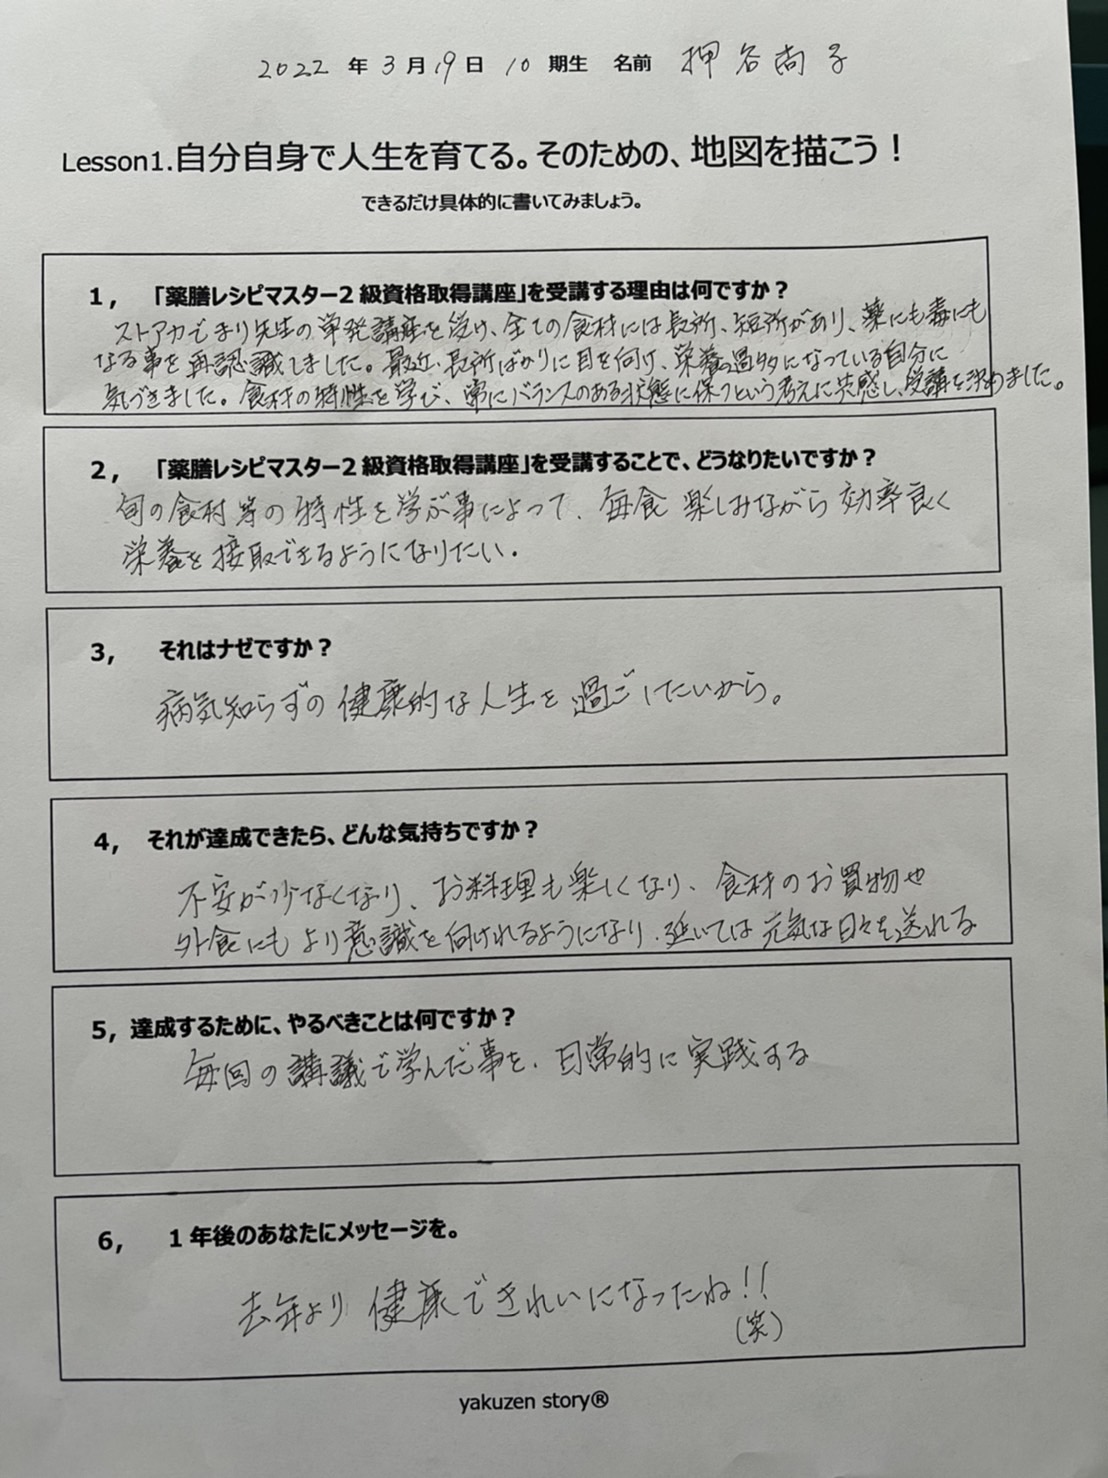 2022 年 3 月 19 日 10 期生 名前 押谷尚子
Lesson1.自分自身で人生を育てる。そのための、地図を描こう！
できるだけ具体的に書いてみましょう。
1， 「薬膳レシピマスター2 級資格取得講座」を受講する理由は何ですか？
ストアカでまり先生の単発講座を受け、全ての食材には長所、短所があり、薬にも毒にも
なる事を再認識しました。最近、長所ばかりに目を向け、栄養過多になっている自分に
気づきました。食材の特性を学び、常にバランスのある状態に保つという考えに共感し、受講を決めました。
2， 「薬膳レシピマスター2 級資格取得講座」を受講することで、どうなりたいですか？
旬の食材等の特性を学ぶ事によって、毎食楽しみながら効率良く
栄養を接取できるようになりたい。
3， それはナゼですか？
病気知らずの健康的な人生を過ごしたいから。
4， それが達成できたら、どんな気持ちですか？
不安が少なくなり、お料理も楽しくなり、食材のお買物や
外食にもより意識を向けれるようになり、延いては元気な日々を送れる
5，達成するために、やるべきことは何ですか？
毎回の講議で学んだ事を、日常的に実践する
6， 1 年後のあなたにメッセージを。
去年より健康できれいになったね!!
(笑)
yakuzen story®